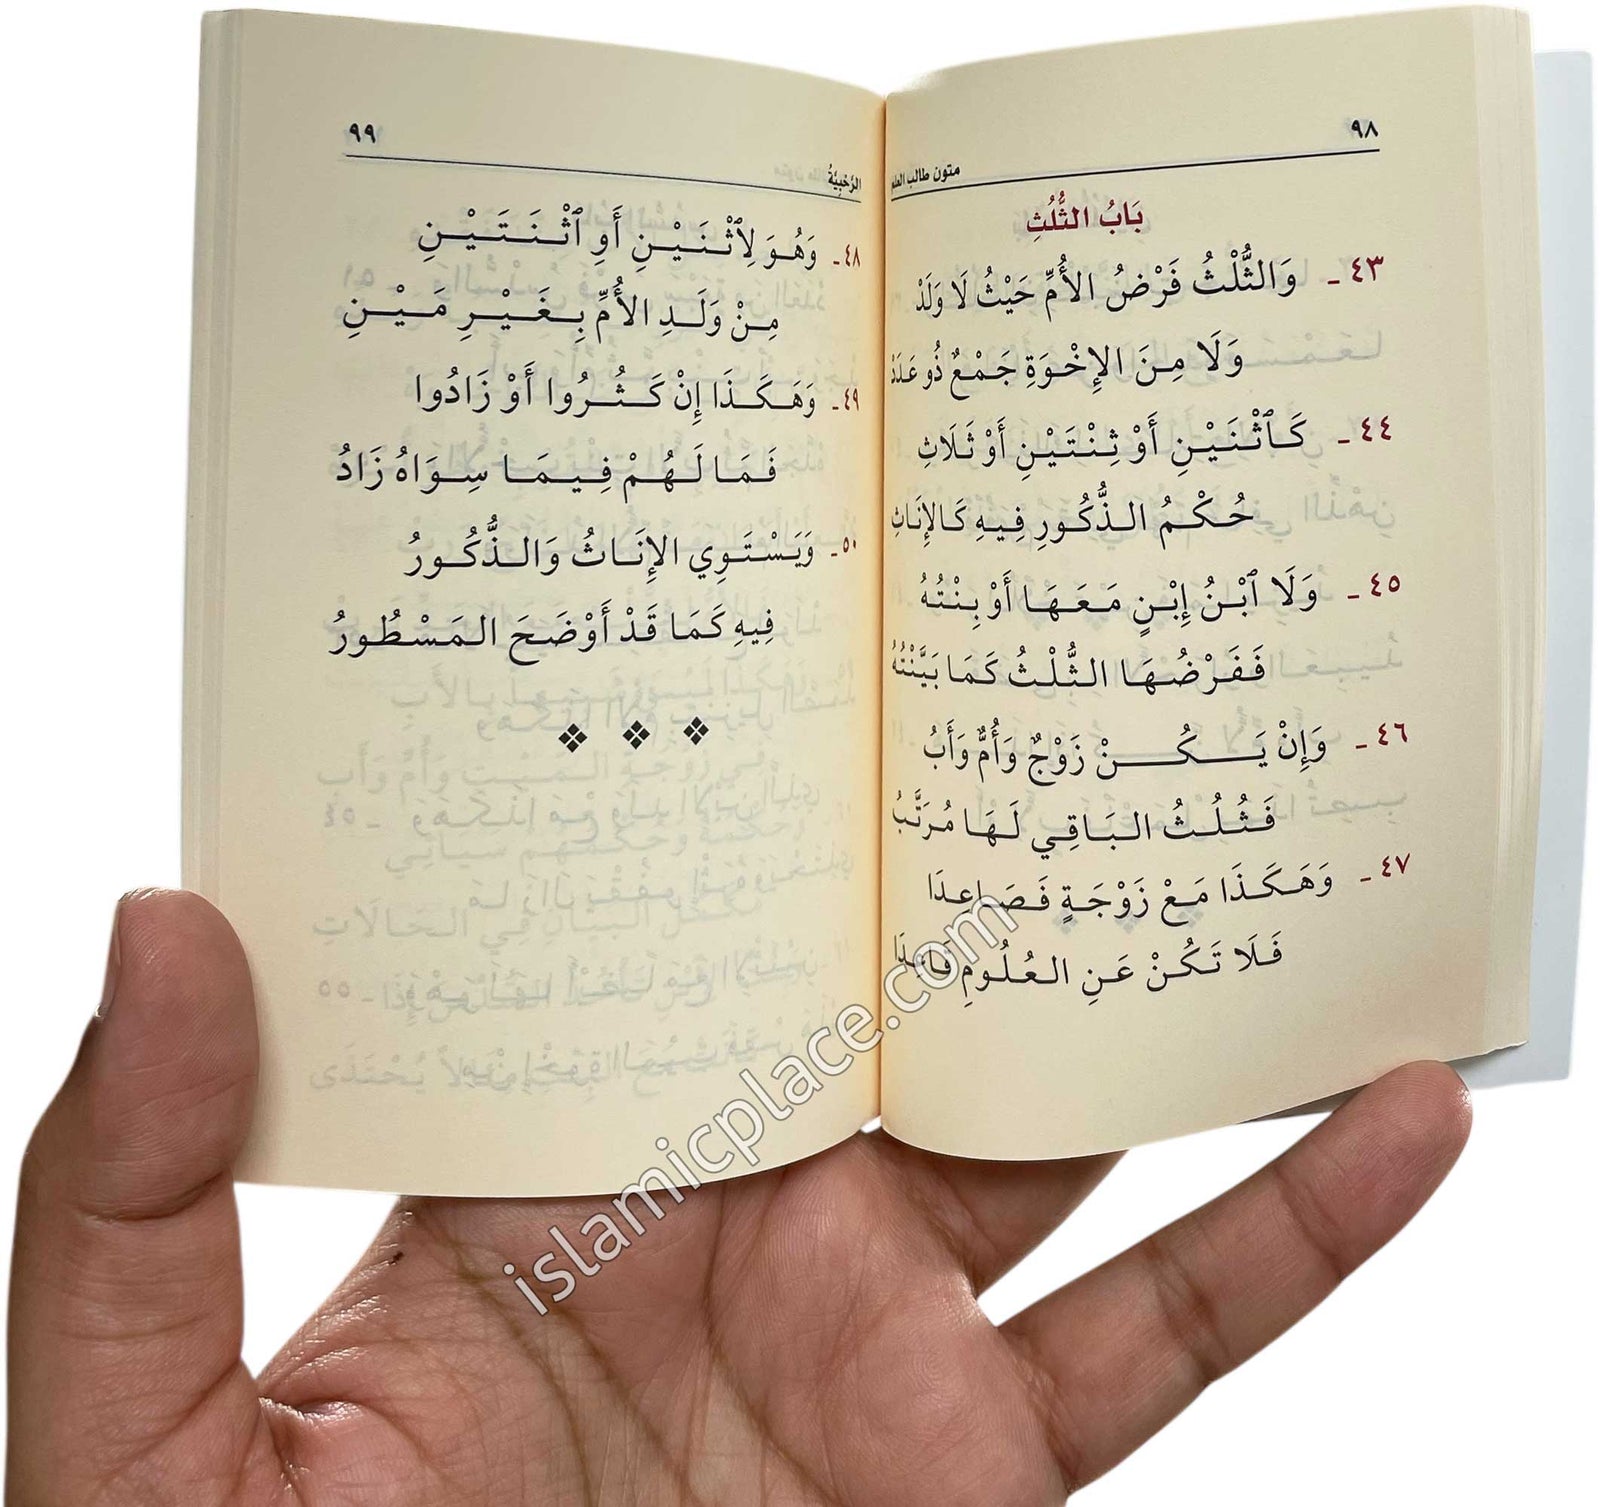 ٩٨
متون طالب العلم
بَابُ الثُّلُثِ
٤٣ - وَالثُّلْثُ فَرْضُ الأُمِّ حَيْثُ لَا وَلَدْ
وَلَا مِنَ الإِخْوَةِ جَمْعٌ ذُو عَدَدْ
٤٤ - كَٱثْنَيْنِ أَوْ ثِنْتَيْنِ أَوْ ثَلَاثِ
حُكْمُ الذُّكُورِ فِيهِ كَالإِنَاثِ
٤٥ - وَلَا ٱبْنُ إِبْنٍ مَعَهَا أَوْ بِنْتُهُ
فَفَرْضُهَا الثُّلْثُ كَمَا بَيَّنْتُهُ
٤٦ - وَإِنْ يَكُنْ زَوْجٌ وَأُمٌّ وَأَبُ
فَثُلُثُ البَاقِي لَهَا مُرَتَّبُ
٤٧ - وَهَكَذَا مَعْ زَوْجَةٍ فَصَاعِدَا
فَلَا تَكُنْ عَنِ العُلُومِ قَاعِدَا
٩٩
الرَّحْبِيَّةُ
٤٨ - وَهُوَ لِٱثْنَيْنِ أَوِ ٱثْنَتَيْنِ
مِنْ وَلَدِ الأُمِّ بِغَيْرِ مَيْنِ
٤٩ - وَهَكَذَا إِنْ كَثُرُوا أَوْ زَادُوا
فَمَا لَهُمْ فِيمَا سِوَاهُ زَادُ
٥٠ - وَيَسْتَوِي الإِنَاثُ وَالذُّكُورُ
فِيهِ كَمَا قَدْ أَوْضَحَ المَسْطُورُ
islamicplace.com